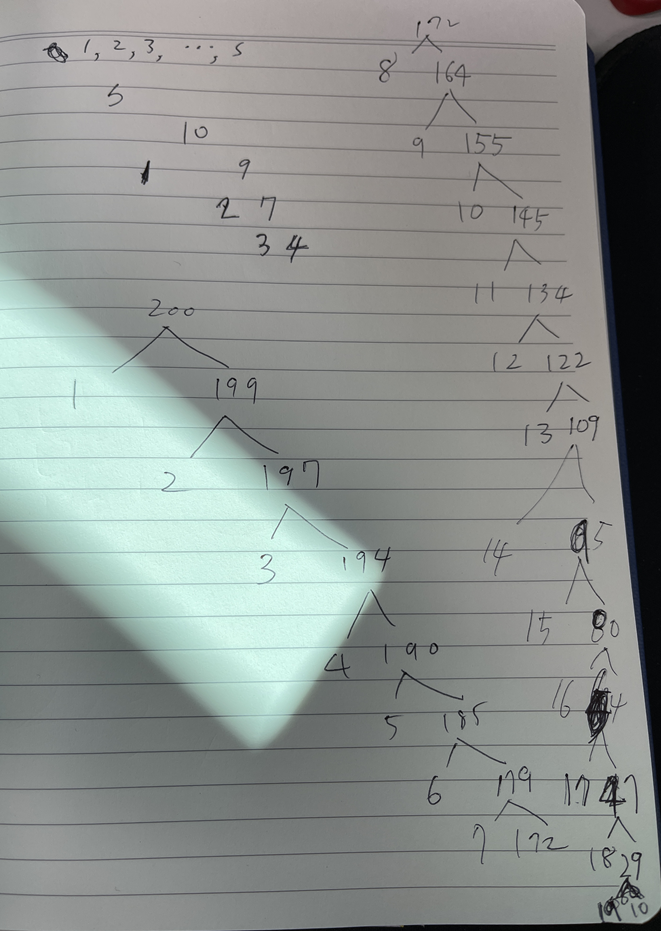 1, 2, 3, ..., 5
5
10
1 9
2 7
3 4
200
1 199
2 197
3 194
4 190
5 185
6 179
7 172
172
8 164
9 155
10 145
11 134
12 122
13 109
14 95
15 80
16 64
17 47
18 29
19 10